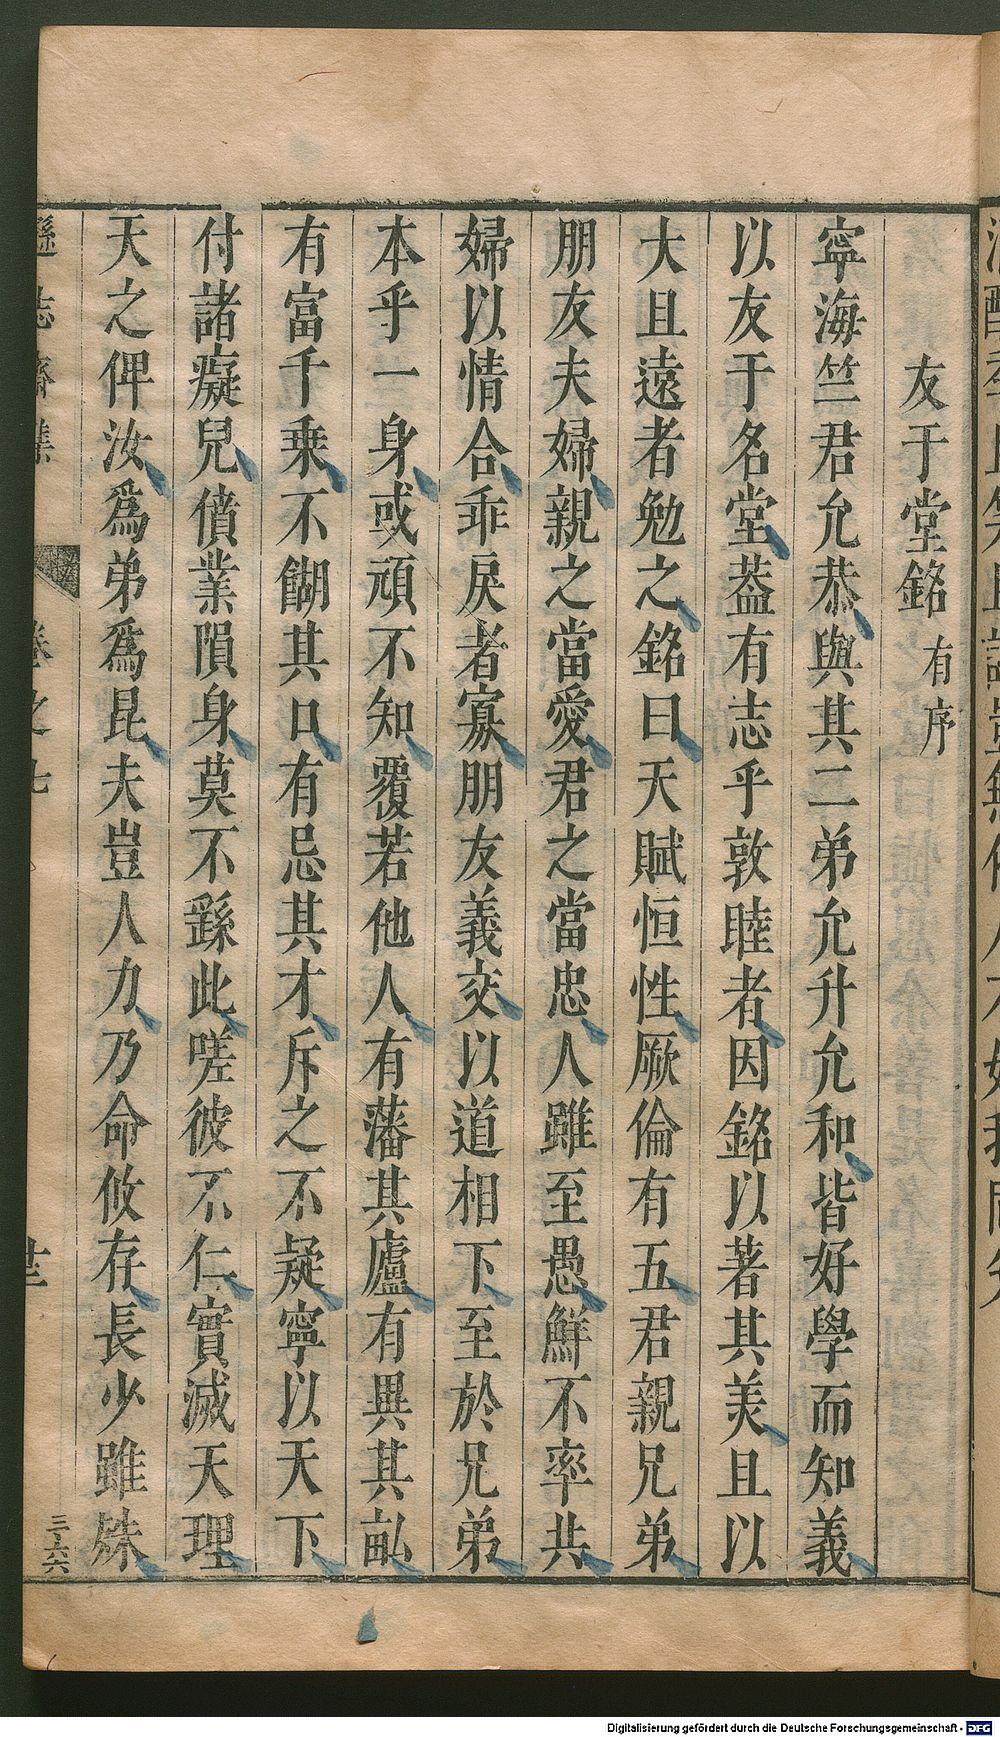 友于堂銘有序
寧海竺君允恭與其二弟允升允和皆好學而知義
以友于名堂葢有志乎敦睦者因銘以著其美且以
大且遠者勉之銘曰天賦恒性厥倫有五君親兄弟
朋友夫婦親之當愛君之當忠人雖至愚鮮不率共
婦以情合乖戾者寡朋友義交以道相下至於兄弟
本乎一身或頑不知覆若他人有藩其廬有異其畆
有富千乗不餬其口有忌其才斥之不疑寧以天下
付諸癡兒僨業隕身莫不繇此嗟彼不仁實滅天理
天之俾汝爲弟爲昆夫豈人力乃命攸存長少雖殊
遜志齋集
卷之七
廿
三六六
Digitalisierung gefördert durch die Deutsche Forschungsgemeinschaft - DFG